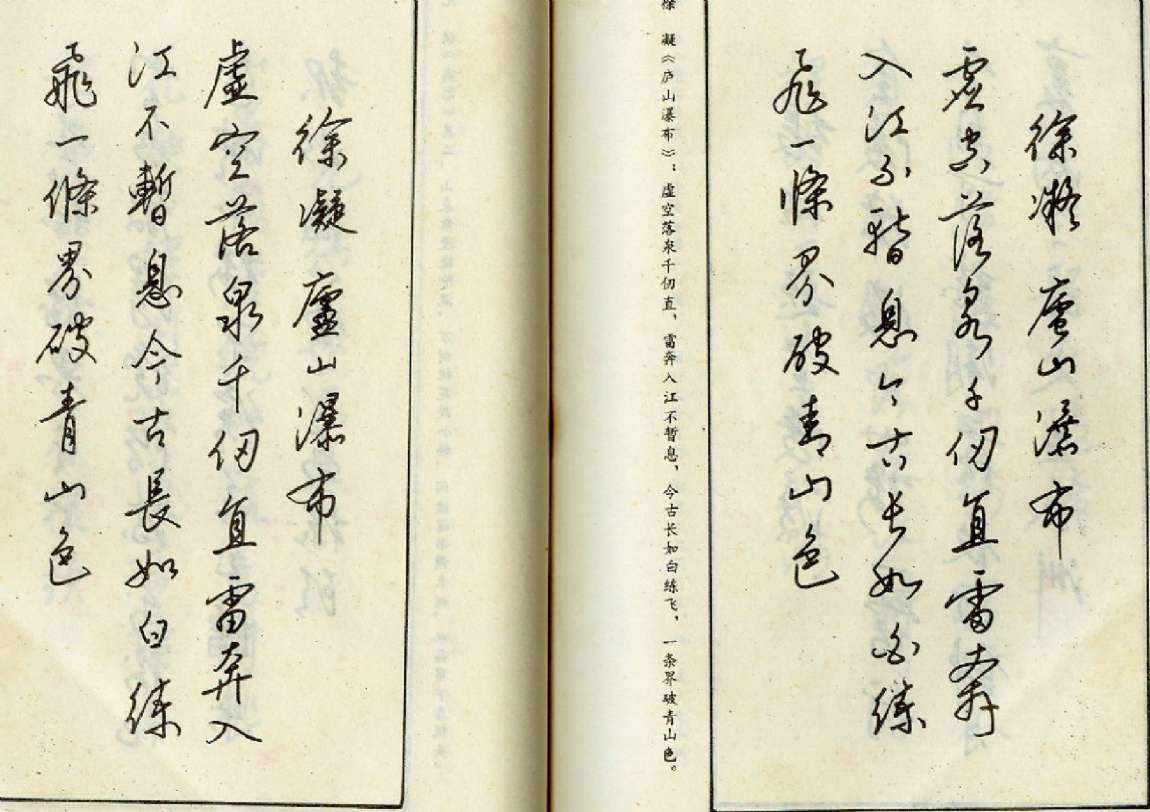 徐凝廬山瀑布
虛空落泉千仞直雷奔
入江不暫息今古長如白練
飛一條界破青山色
徐 凝《庐山瀑布》：虚空落泉千仞直，雷奔入江不暂息，今古长如白练飞，一条界破青山色。
徐凝廬山瀑布
虛空落泉千仞直雷奔入
江不暫息今古長如白練
飛一條界破青山色